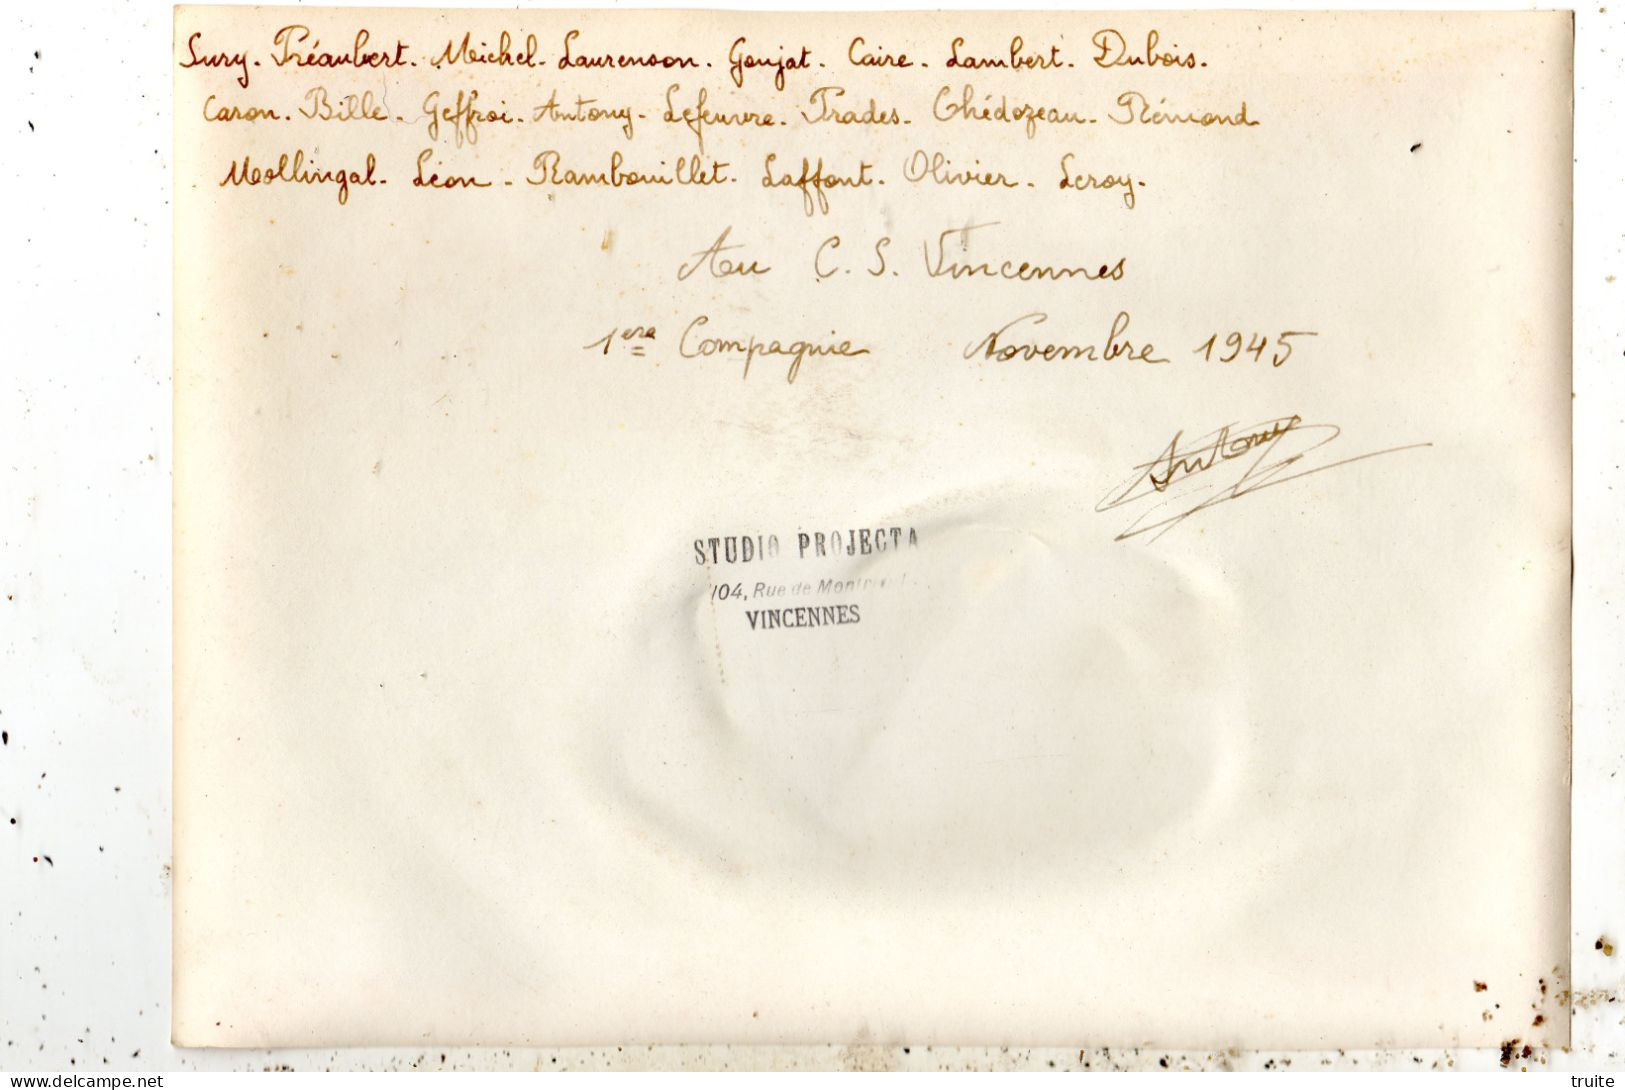 Sury. Préaubert. Michel. Laurenson. Goujat. Caire. Lambert. Dubois.
Caron. Bille. Geffroi. Antony. Lefeuvre. Prades. Chédozeau. Rémond
Mollingal. Léon. Rambouillet. Laffont. Olivier. Leroy.
Au C. S. Vincennes
1ère Compagnie Novembre 1945
Antony
STUDIO PROJECTA
104, Rue de
VINCENNES
www.delcampe.net
truite